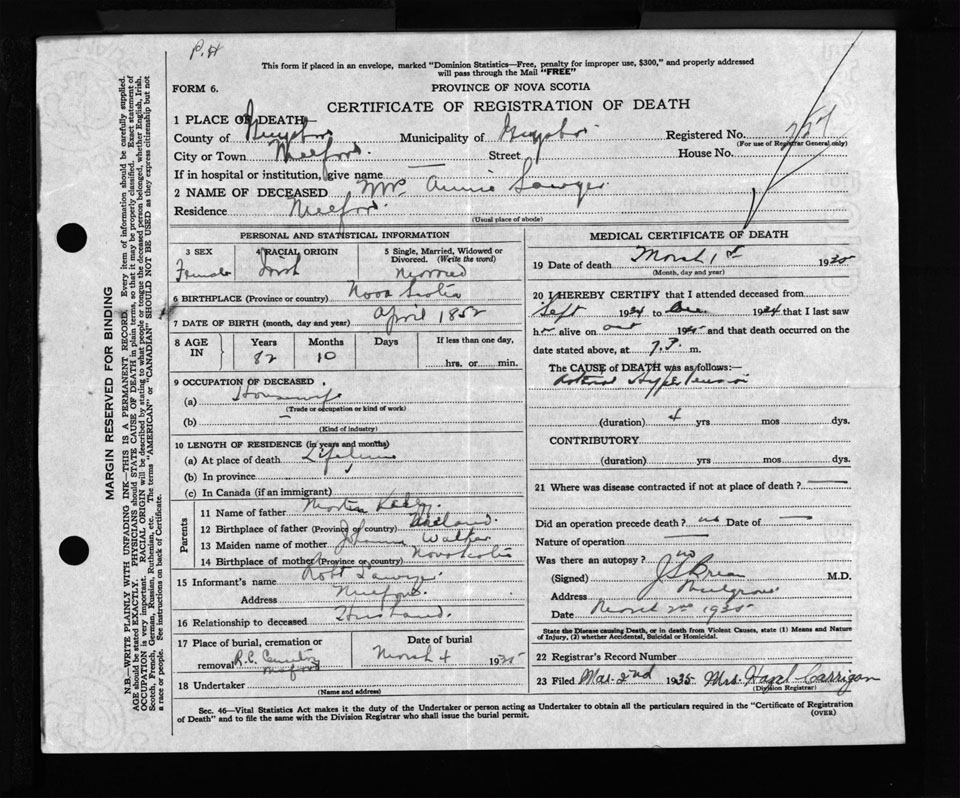 This form if placed in an envelope, marked "Dominion Statistics—Free, penalty for improper use, $300," and properly addressed
will pass through the Mail "FREE"
FORM 6.
PROVINCE OF NOVA SCOTIA
CERTIFICATE OF REGISTRATION OF DEATH
1 PLACE OF DEATH—
County of Municipality of Guysboro Registered No.
(For use of Registrar General only)
City or Town Milford. Street House No.
If in hospital or institution, give name —
2 NAME OF DECEASED Mrs Annie Sawyer
Residence Milford
(Usual place of abode)
PERSONAL AND STATISTICAL INFORMATION
3 SEX
Female
4 RACIAL ORIGIN
Irish
5 Single, Married, Widowed or
Divorced. (Write the word)
Married
6 BIRTHPLACE (Province or country) Nova Scotia
7 DATE OF BIRTH (month, day and year) April 1852
8 AGE
IN
Years
82
Months
10
Days
If less than one day,
hrs. or min.
9 OCCUPATION OF DECEASED
(a) Housewife
(Trade or occupation or kind of work)
(b) —
(Kind of industry)
10 LENGTH OF RESIDENCE (in years and months)
(a) At place of death Lifetime
(b) In province
(c) In Canada (if an immigrant)
Parents
11 Name of father Martin Kelly
12 Birthplace of father (Province or country) Ireland
13 Maiden name of mother Johanna Walker
14 Birthplace of mother (Province or country) Nova Scotia
15 Informant's name Robt Sawyer
Address Milford
16 Relationship to deceased Husband.
17 Place of burial, cremation or
removal R.C. Milford
Date of burial
March 4 1935
18 Undertaker
(Name and address)
MEDICAL CERTIFICATE OF DEATH
19 Date of death March 1st 1935
(Month, day and year)
20 I HEREBY CERTIFY that I attended deceased from
Sept 1934 to Dec. 1934 that I last saw
her alive on 19 and that death occurred on the
date stated above, at m.
The CAUSE of DEATH was as follows:—
Arterial Hypertension
(duration) 4 yrs mos dys.
CONTRIBUTORY
(duration) yrs. mos dys.
21 Where was disease contracted if not at place of death? —
Did an operation precede death? no Date of —
Nature of operation —
Was there an autopsy? no
(Signed) M.D.
Address Mulgrave
Date March 2nd 1935
State the Disease causing Death, or in death from Violent Causes, state (1) Means and Nature
of Injury, (2) whether Accidental, Suicidal or Homicidal.
22 Registrar's Record Number
23 Filed Mar. 2nd 1935 Mrs. Hazel Carrigan
(Division Registrar)
Sec. 46—Vital Statistics Act makes it the duty of the Undertaker or person acting as Undertaker to obtain all the particulars required in the "Certificate of Registration
of Death" and to file the same with the Division Registrar who shall issue the burial permit.
(OVER)
MARGIN RESERVED FOR BINDING
N.B.—WRITE PLAINLY WITH UNFADING INK—THIS IS A PERMANENT RECORD. Every item of information should be carefully supplied.
AGE should be stated EXACTLY. PHYSICIANS should STATE CAUSE OF DEATH in plain terms, so that it may be properly classified. Exact statement of
OCCUPATION is very important. RACIAL ORIGIN will be described by stating to what people or tongue the deceased person belonged, whether English, Irish,
Scotch, French, German, Russian, Ruthenian, etc. The terms "AMERICAN" or "CANADIAN" SHOULD NOT BE USED as they express citizenship but not
a race or people. See instructions on back of Certificate.